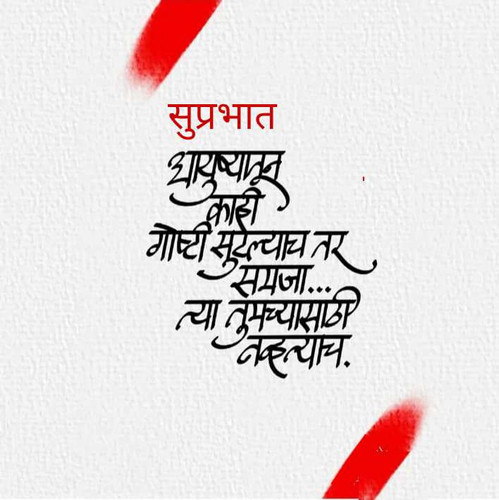 सुप्रभात
आयुष्यातून
काही
गोष्टी सुटल्याच तर,
समजा...
त्या तुमच्यासाठी
नव्हत्याच.